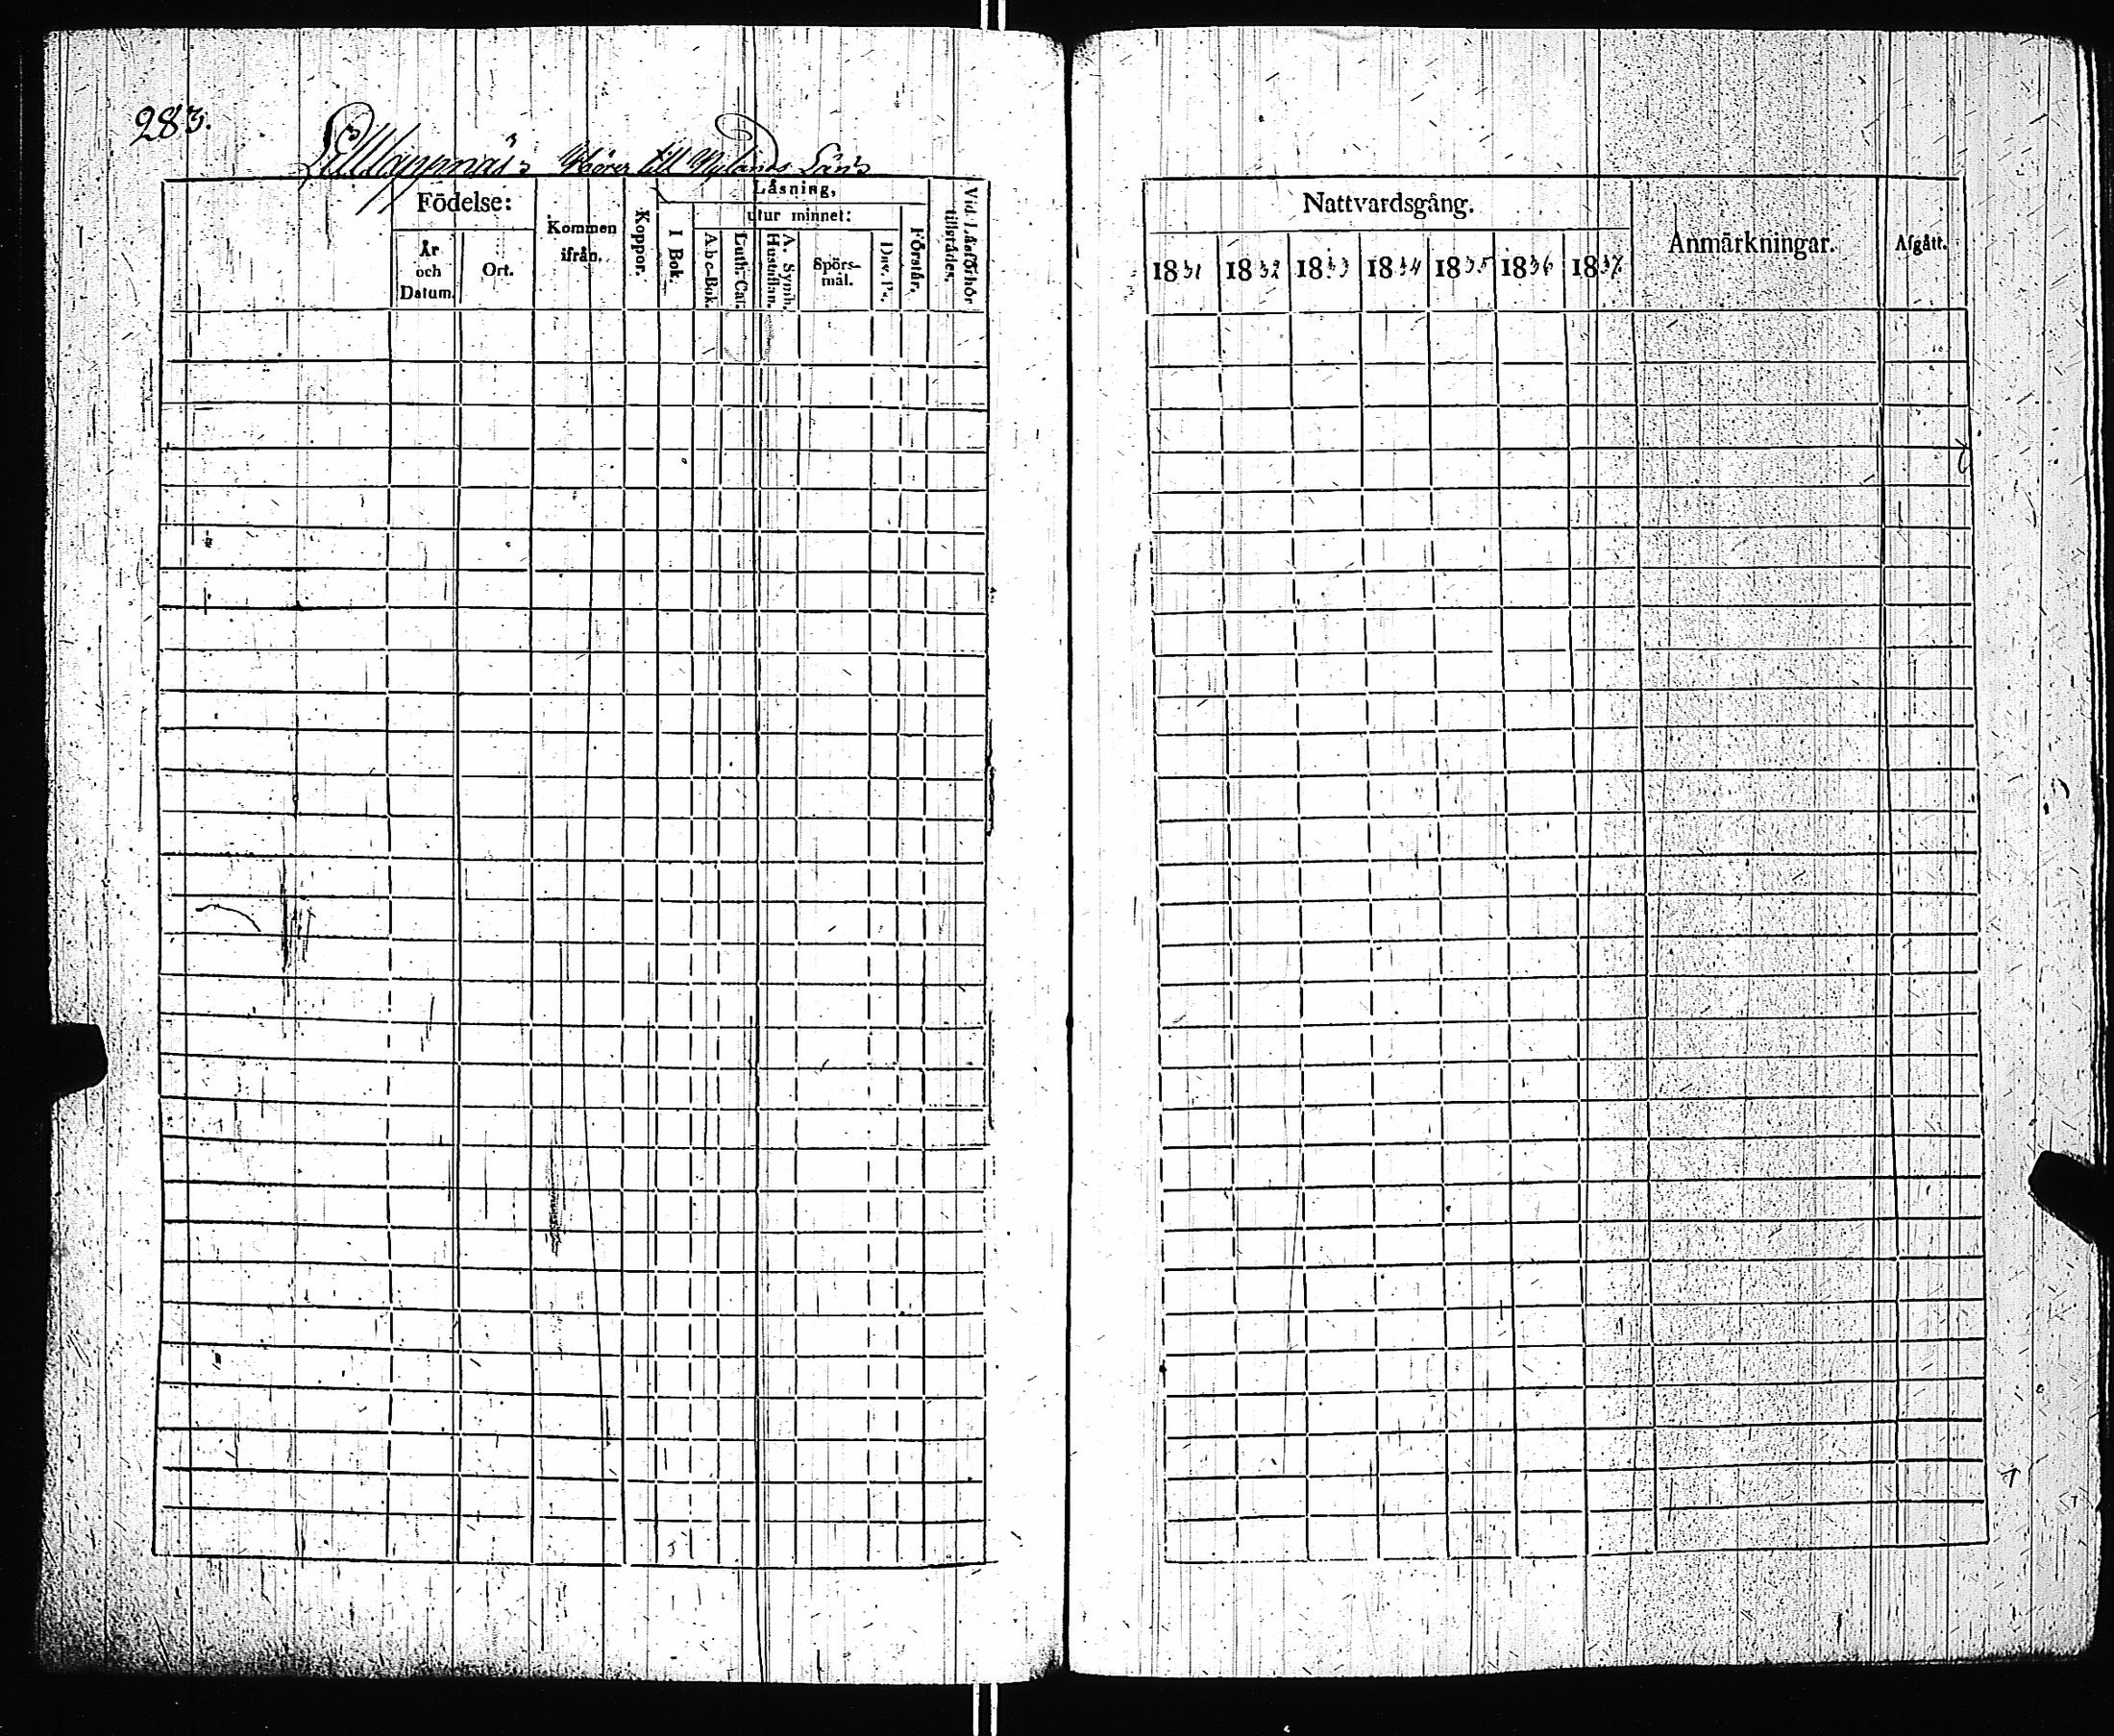 283.
Lilllappnäs Hörer till Nylands Län
Födelse:
År och Datum.
Ort.
Kommen ifrån.
Koppor.
Läsning,
I Bok.
utur minnet:
Abc-Bok.
Luth. Cat.
A. Symb. Hustaflan.
Spörs-mål.
Dav. Ps.
Förstår.
Vid Läsförhör tillstädes.
Nattvardsgång.
1831 1832 1833 1834 1835 1836 1837
Anmärkningar.
Afgått.